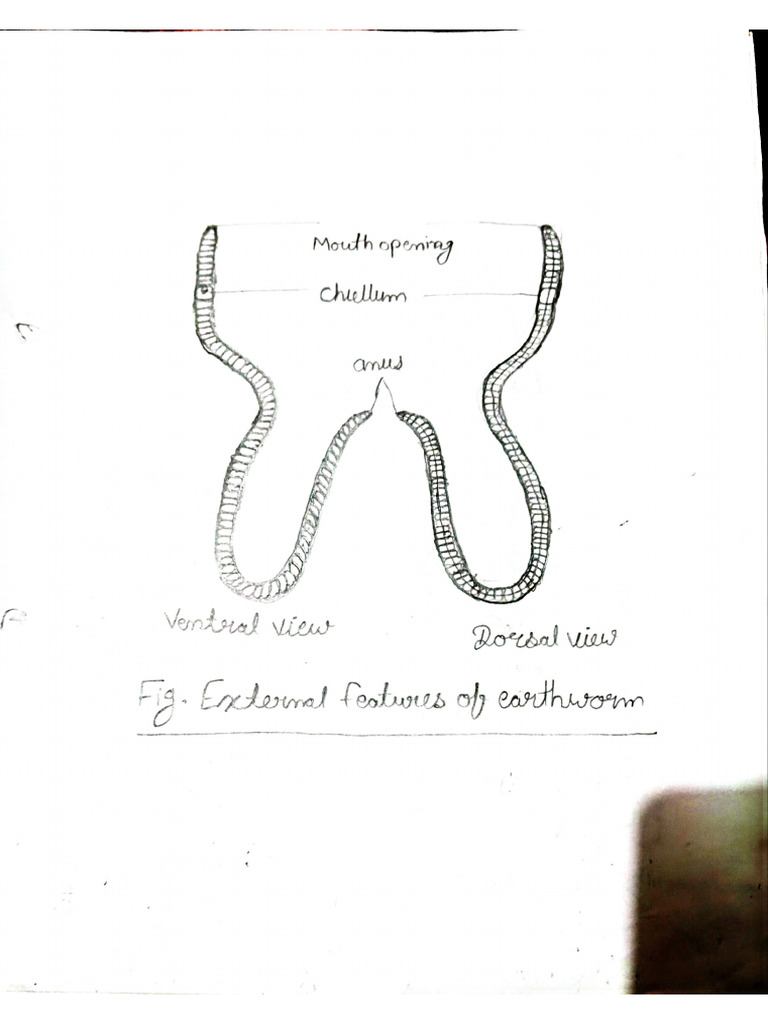 Mouth opening
Chiellum
anus
Ventral view
Dorsal view
Fig. External features of earthworm